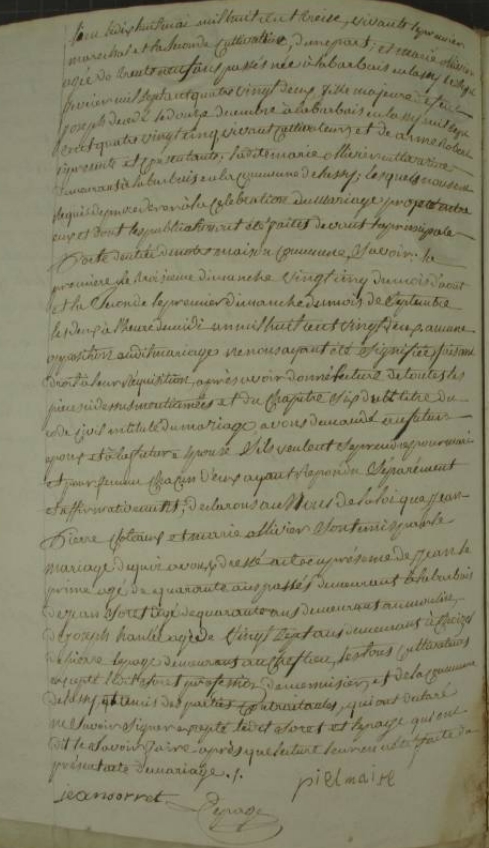 mil huit cent treize, vivants le premier
marechal et la seconde cultivatrice, d'une part; et marie ollivier
agée de trente neuf ans passés née à la barbais en lassy le sept
fevrier mil sept cent quatre vingt deux, fille majeure de feu
joseph decedé le douze decembre à la barbais en lassy mil sept
cent quatre vingt cinq vivant cultivateur, et de anne
presente et consentante; ladite marie ollivier cultivatrice
demeurant à la barbais en la commune de lassy; lesquels nous ont
requis de proceder à la celebration du mariage projeté entre
eux et dont les publications ont été faites devant la principale
Porte d'entrée de notre maison commune, Savoir: la
première le troisieme dimanche vingt cinq du mois d'aout
et la Seconde le premier dimanche du mois de Septembre
les deux à l'heure de midi an mil huit cent vingt deux aucune
opposition audit mariage ne nous ayant été Signifiée faisant
droit à leur requisition, après avoir donné lecture de toutes les
pieces ci dessus mentionnées et du Chapitre Six du titre du
code civil intitulé du mariage avons demandé au futur
epoux et à la future epouse S'ils veulent se prendre pour mari
et pour femme Chacun d'eux ayant repondu Séparément
et affirmativement; declarons au Nom de la loi que Jean
Pierre et marie ollivier Sont unis par le
mariage de quoi avons dressé acte en présence de Jean le
prime agé de quarante ans passés demeurant à la barbais
de jean Soret agé de quarante ans demeurant au
de joseph agé de vingt Sept ans demeurant à
de pierre Lepage demeurant au Chef lieu, tous cultivateurs
excepté ledit Soret profession de menuisier, et de la commune
de lassy amis des parties contractantes, qui ont declaré
ne Savoir Signer excepté ledit Soret et Lepage qui ont
dit le Savoir faire après que lecture leur en a été faite du
présent acte de mariage ./.
jean sorret Lepage piel maire